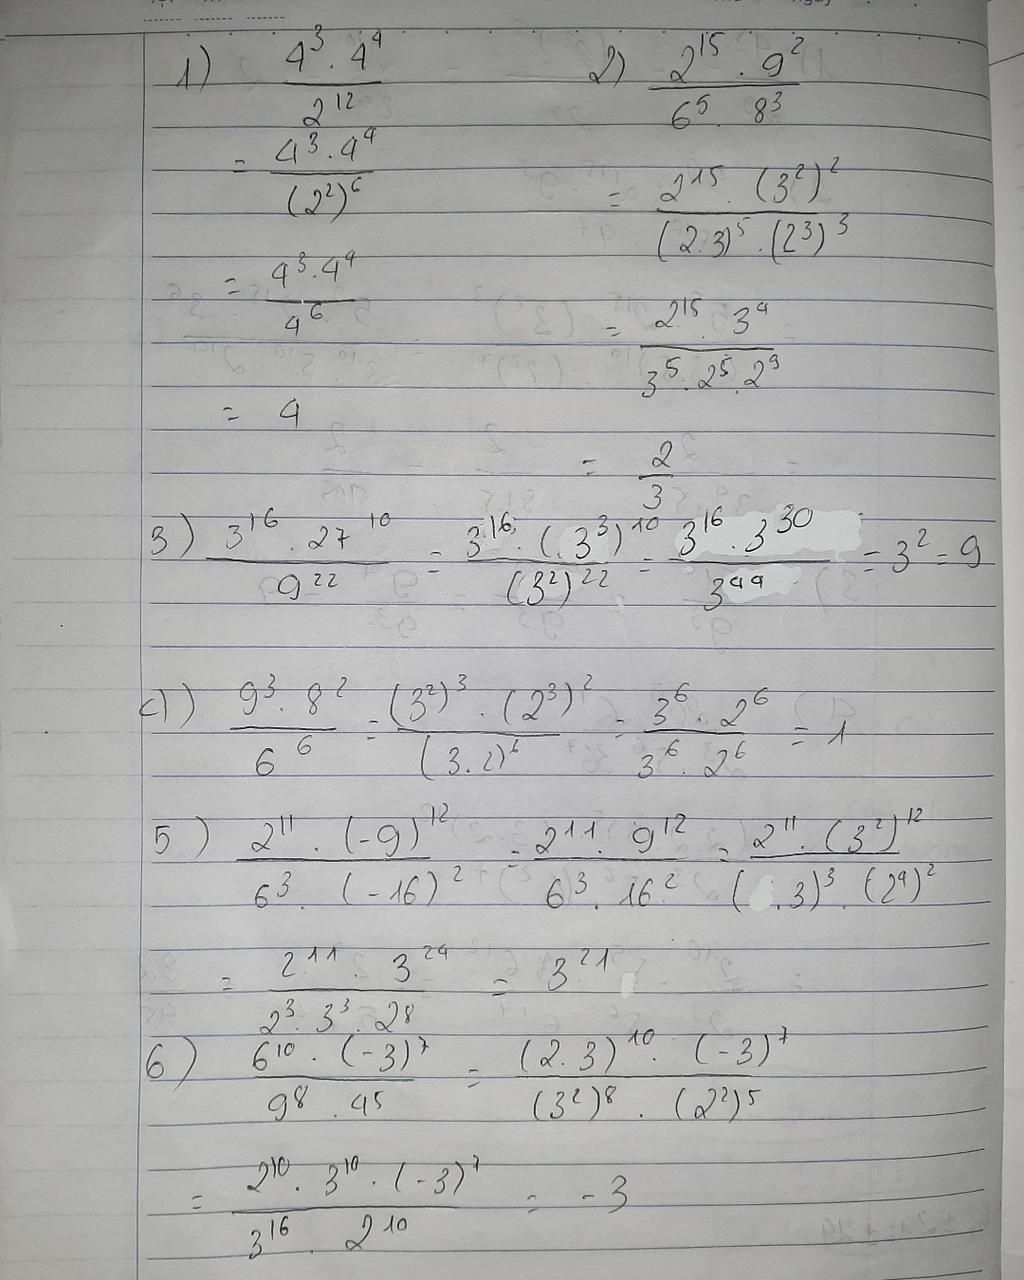 1) 4³ . 4⁴ / 2¹² 2) 2¹⁵ . 9² / 6⁵ . 8³
= 4³ . 4⁴ / (2²)⁶ = 2¹⁵ . (3²)² / (2.3)⁵ . (2³)³
= 4³ . 4⁴ / 4⁶ = 2¹⁵ . 3⁴ / 3⁵ . 2⁵ . 2⁹
= 4 = 2 / 3
3) 3¹⁶ . 27¹⁰ / 9²² = 3¹⁶ . (3³)¹⁰ / (3²)²² = 3¹⁶ . 3³⁰ / 3⁴⁴ = 3² = 9
4) 9³ . 8² / 6⁶ = (3²)³ . (2³)² / (3.2)⁶ = 3⁶ . 2⁶ / 3⁶ . 2⁶ = 1
5) 2¹¹ . (-9)¹² / 6³ . (-16)² = 2¹¹ . 9¹² / 6³ . 16² = 2¹¹ . (3²)¹² / ( .3)³ . (2⁴)²
= 2¹¹ . 3²⁴ / 2³ . 3³ . 2⁸ = 3²¹
6) 6¹⁰ . (-3)⁷ / 9⁸ . 4⁵ = (2.3)¹⁰ . (-3)⁷ / (3²)⁸ . (2²)⁵
= 2¹⁰ . 3¹⁰ . (-3)⁷ / 3¹⁶ . 2¹⁰ = -3